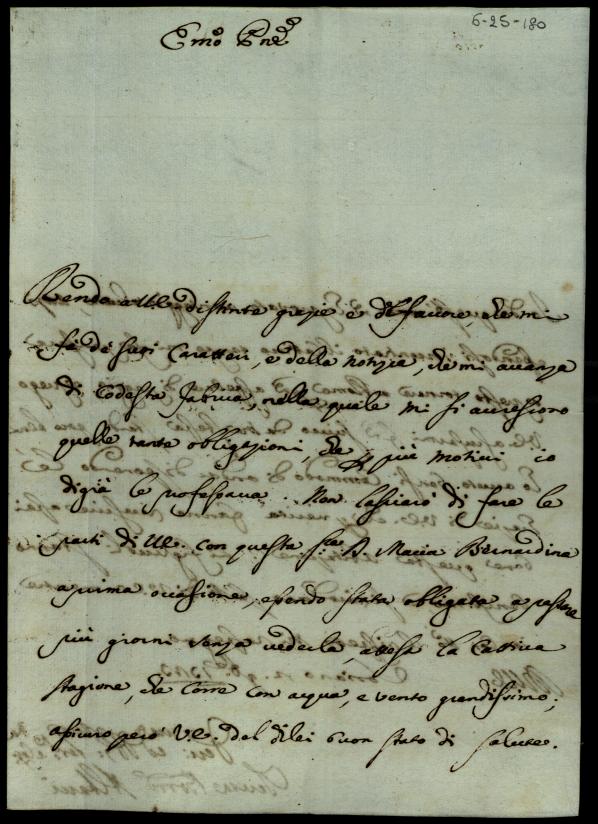 6-25-180
Emo Pne
Rendo a V.E. distinte grazie e del favore, che mi
fè de suoi Caratteri, e della notizia, che mi avanza
di codesta fabrica, nella quale mi si accressiono
quelle tante obligazioni, che più motivi io
digià le professava. Non lassiarò di fare le
parti di V.E. con questa Sre D. Maria Bernardina
a prima occasione, essendo stata obligata a passare
più giorni senza vederla, attesa la Cattiva
stagione, che corre con acqua, e vento grandissimo;
assicuro però V.E. del di lei buon stato di salute.